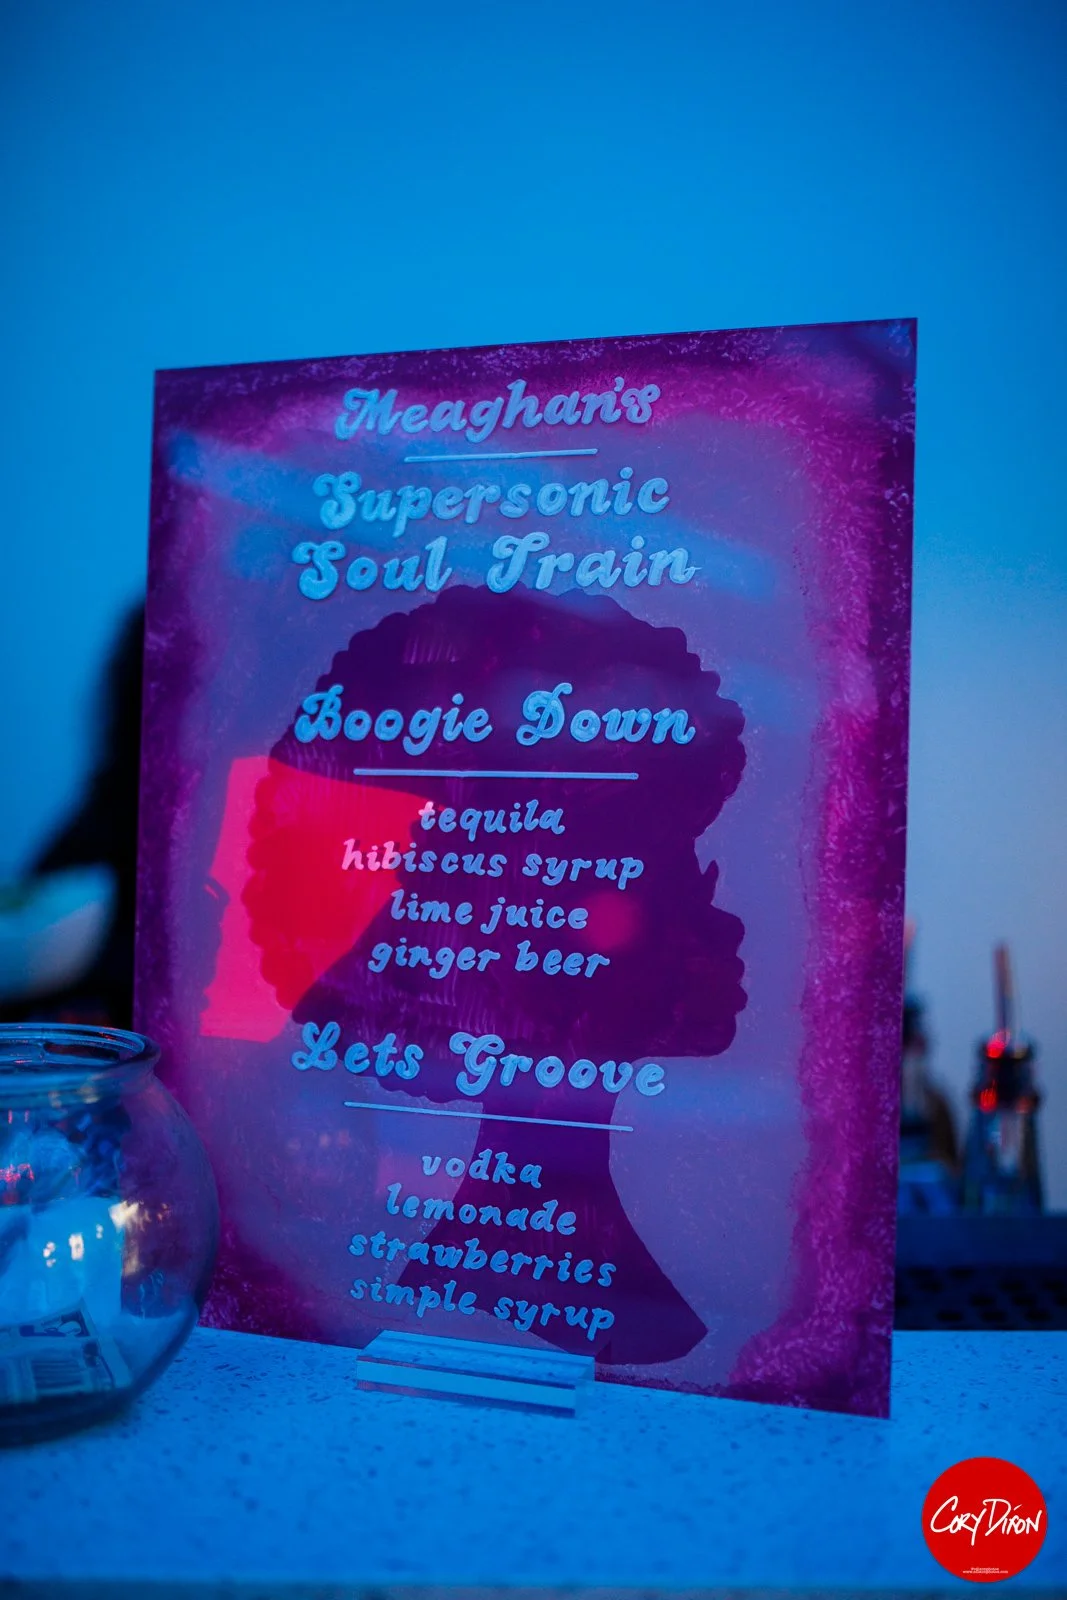 Meaghan's
Supersonic
Soul Train
Boogie Down
tequila
hibiscus syrup
lime juice
ginger beer
Lets Groove
vodka
lemonade
strawberries
simple syrup
Cory Dixon